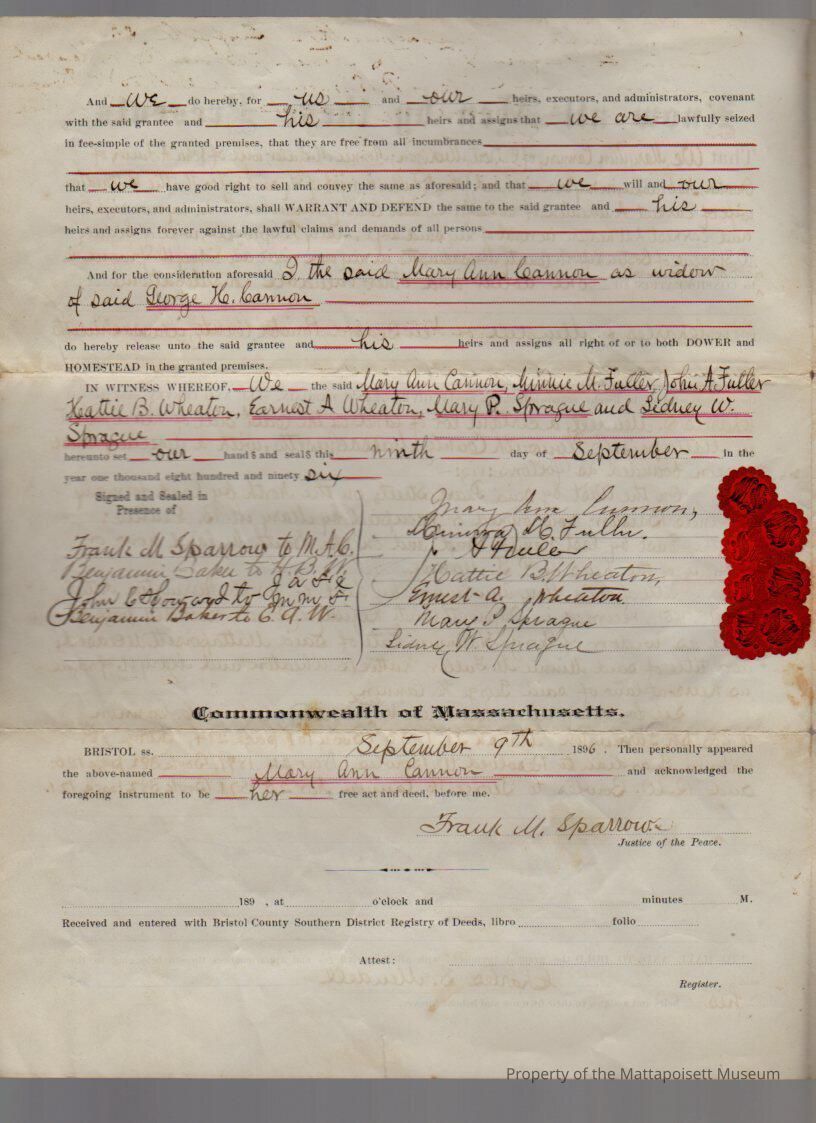 And we do hereby, for us and our heirs, executors, and administrators, covenant
with the said grantee and his heirs and assigns that we are lawfully seized
in fee-simple of the granted premises, that they are free from all incumbrances
that we have good right to sell and convey the same as aforesaid; and that we will and our
heirs, executors, and administrators, shall WARRANT AND DEFEND the same to the said grantee and his
heirs and assigns forever against the lawful claims and demands of all persons
And for the consideration aforesaid I the said Mary Ann Cannon as widow
of said George H. Cannon
do hereby release unto the said grantee and his heirs and assigns all right of or to both DOWER and
HOMESTEAD in the granted premises.
IN WITNESS WHEREOF, We the said Mary Ann Cannon, Minnie M. Fuller, John A. Fuller
Hattie B. Wheaton, Earnest A Wheaton, Mary P. Sprague and Sidney W.
Sprague
hereunto set our hand s and seal s this ninth day of September in the
year one thousand eight hundred and ninety six
Signed and Sealed in
Presence of
Mary Ann Cannon,
M. Fuller.
Frank M Sparrow to M.A.C.
A Fuller
Benjamin Baker to H.B.W.
Hattie B. Wheaton,
John C Howard to M M F
Ernest A. Wheaton.
Benjamin Baker to E. A. W.
Mary P Sprague
Sidney W. Sprague
Commonwealth of Massachusetts.
BRISTOL ss. September 9th 1896. Then personally appeared
the above-named Mary Ann Cannon and acknowledged the
foregoing instrument to be her free act and deed, before me.
Frank M. Sparrow
Justice of the Peace.
189 , at o'clock and minutes M.
Received and entered with Bristol County Southern District Registry of Deeds, libro folio
Attest:
Register.
Property of the Mattapoisett Museum